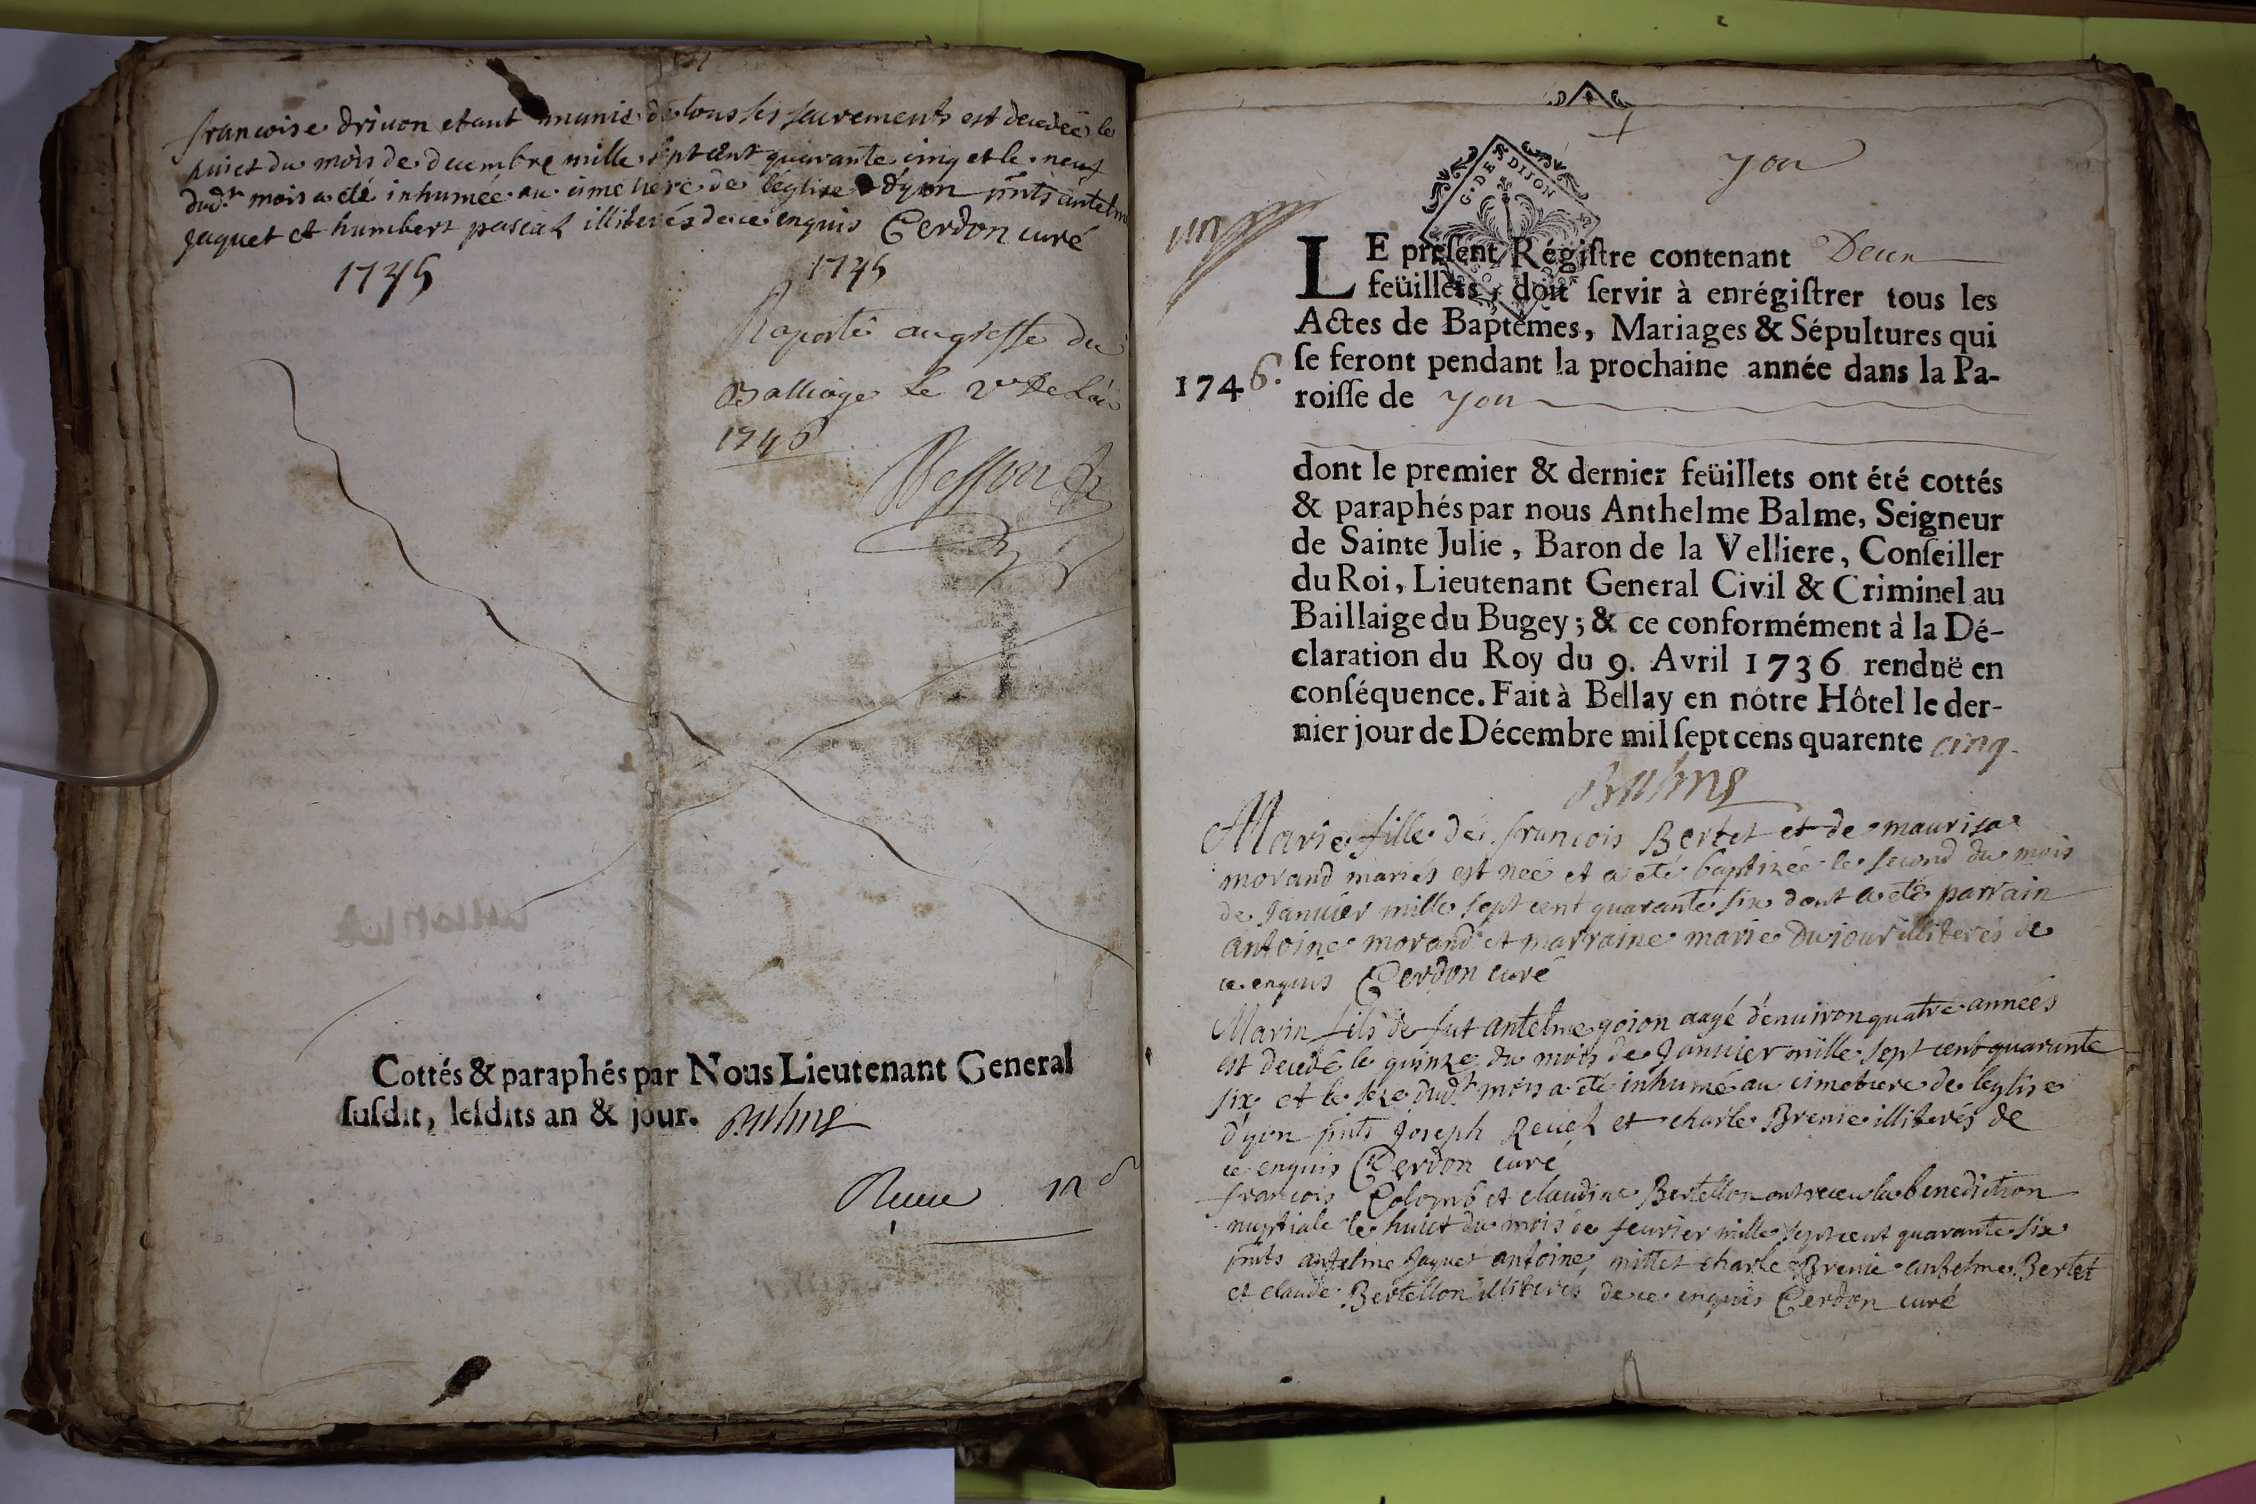 francoise drivon etant munie de tous ses sacrements est decedeé le
huict du mois de decembre mille sept cent quarante cinq et le neuf
dud.t mois a été inhumée au cimetiere de l'église d'yon pnts antelme
jaquet et humbert pascal illiterés de ce enquis Cerdon curé
1745 1745
Raporté au greffe du
Balliage le
1746
Cottés & paraphés par Nous Lieutenant General
ſuſdit, leſdits an & jour. Balme
G. DE DIJON
yon
LE preſent Régiſtre contenant Deux
feüillets, doit ſervir à enrégiſtrer tous les
Actes de Baptêmes, Mariages & Sépultures qui
ſe feront pendant la prochaine année dans la Pa-
1746.
roiſſe de yon
dont le premier & dernier feüillets ont été cottés
& paraphés par nous Anthelme Balme, Seigneur
de Sainte Julie, Baron de la Velliere, Conſeiller
du Roi, Lieutenant General Civil & Criminel au
Baillaige du Bugey; & ce conformément à la Dé-
claration du Roy du 9. Avril 1736 renduë en
conſéquence. Fait à Bellay en nôtre Hôtel le der-
nier jour de Décembre mil ſept cens quarente cinq.
Balme
Marie fille de francois Bertet et de maurisa
morand mariés est neé et a eté baptizeé le second du mois
de Janvier mille sept cent quarante six dont a eté parrain
antoine morand et marraine marie Dujour illiterés de
ce enquis Cerdon curé
Marin fils de fut antelme goion aagé d'enuiron quatre anneés
est decedé le quinze du mois de Januier mille sept cent quarante
six et le seze dud.t mois a eté inhumé au cimetiere de l'eglise
d'yon pnts Joseph Reuel et charle Brenie illiterés de
ce enquis Cerdon curé
francois Colomb et claudine Bertellon ont receu la benediction
nuptiale le huict du mois de feurier mille sept cent quarante six
pnts antelme Jaquet antoine mittet charle Brenie antelme Bertet
et claude Bertellon illiterés de ce enquis Cerdon curé